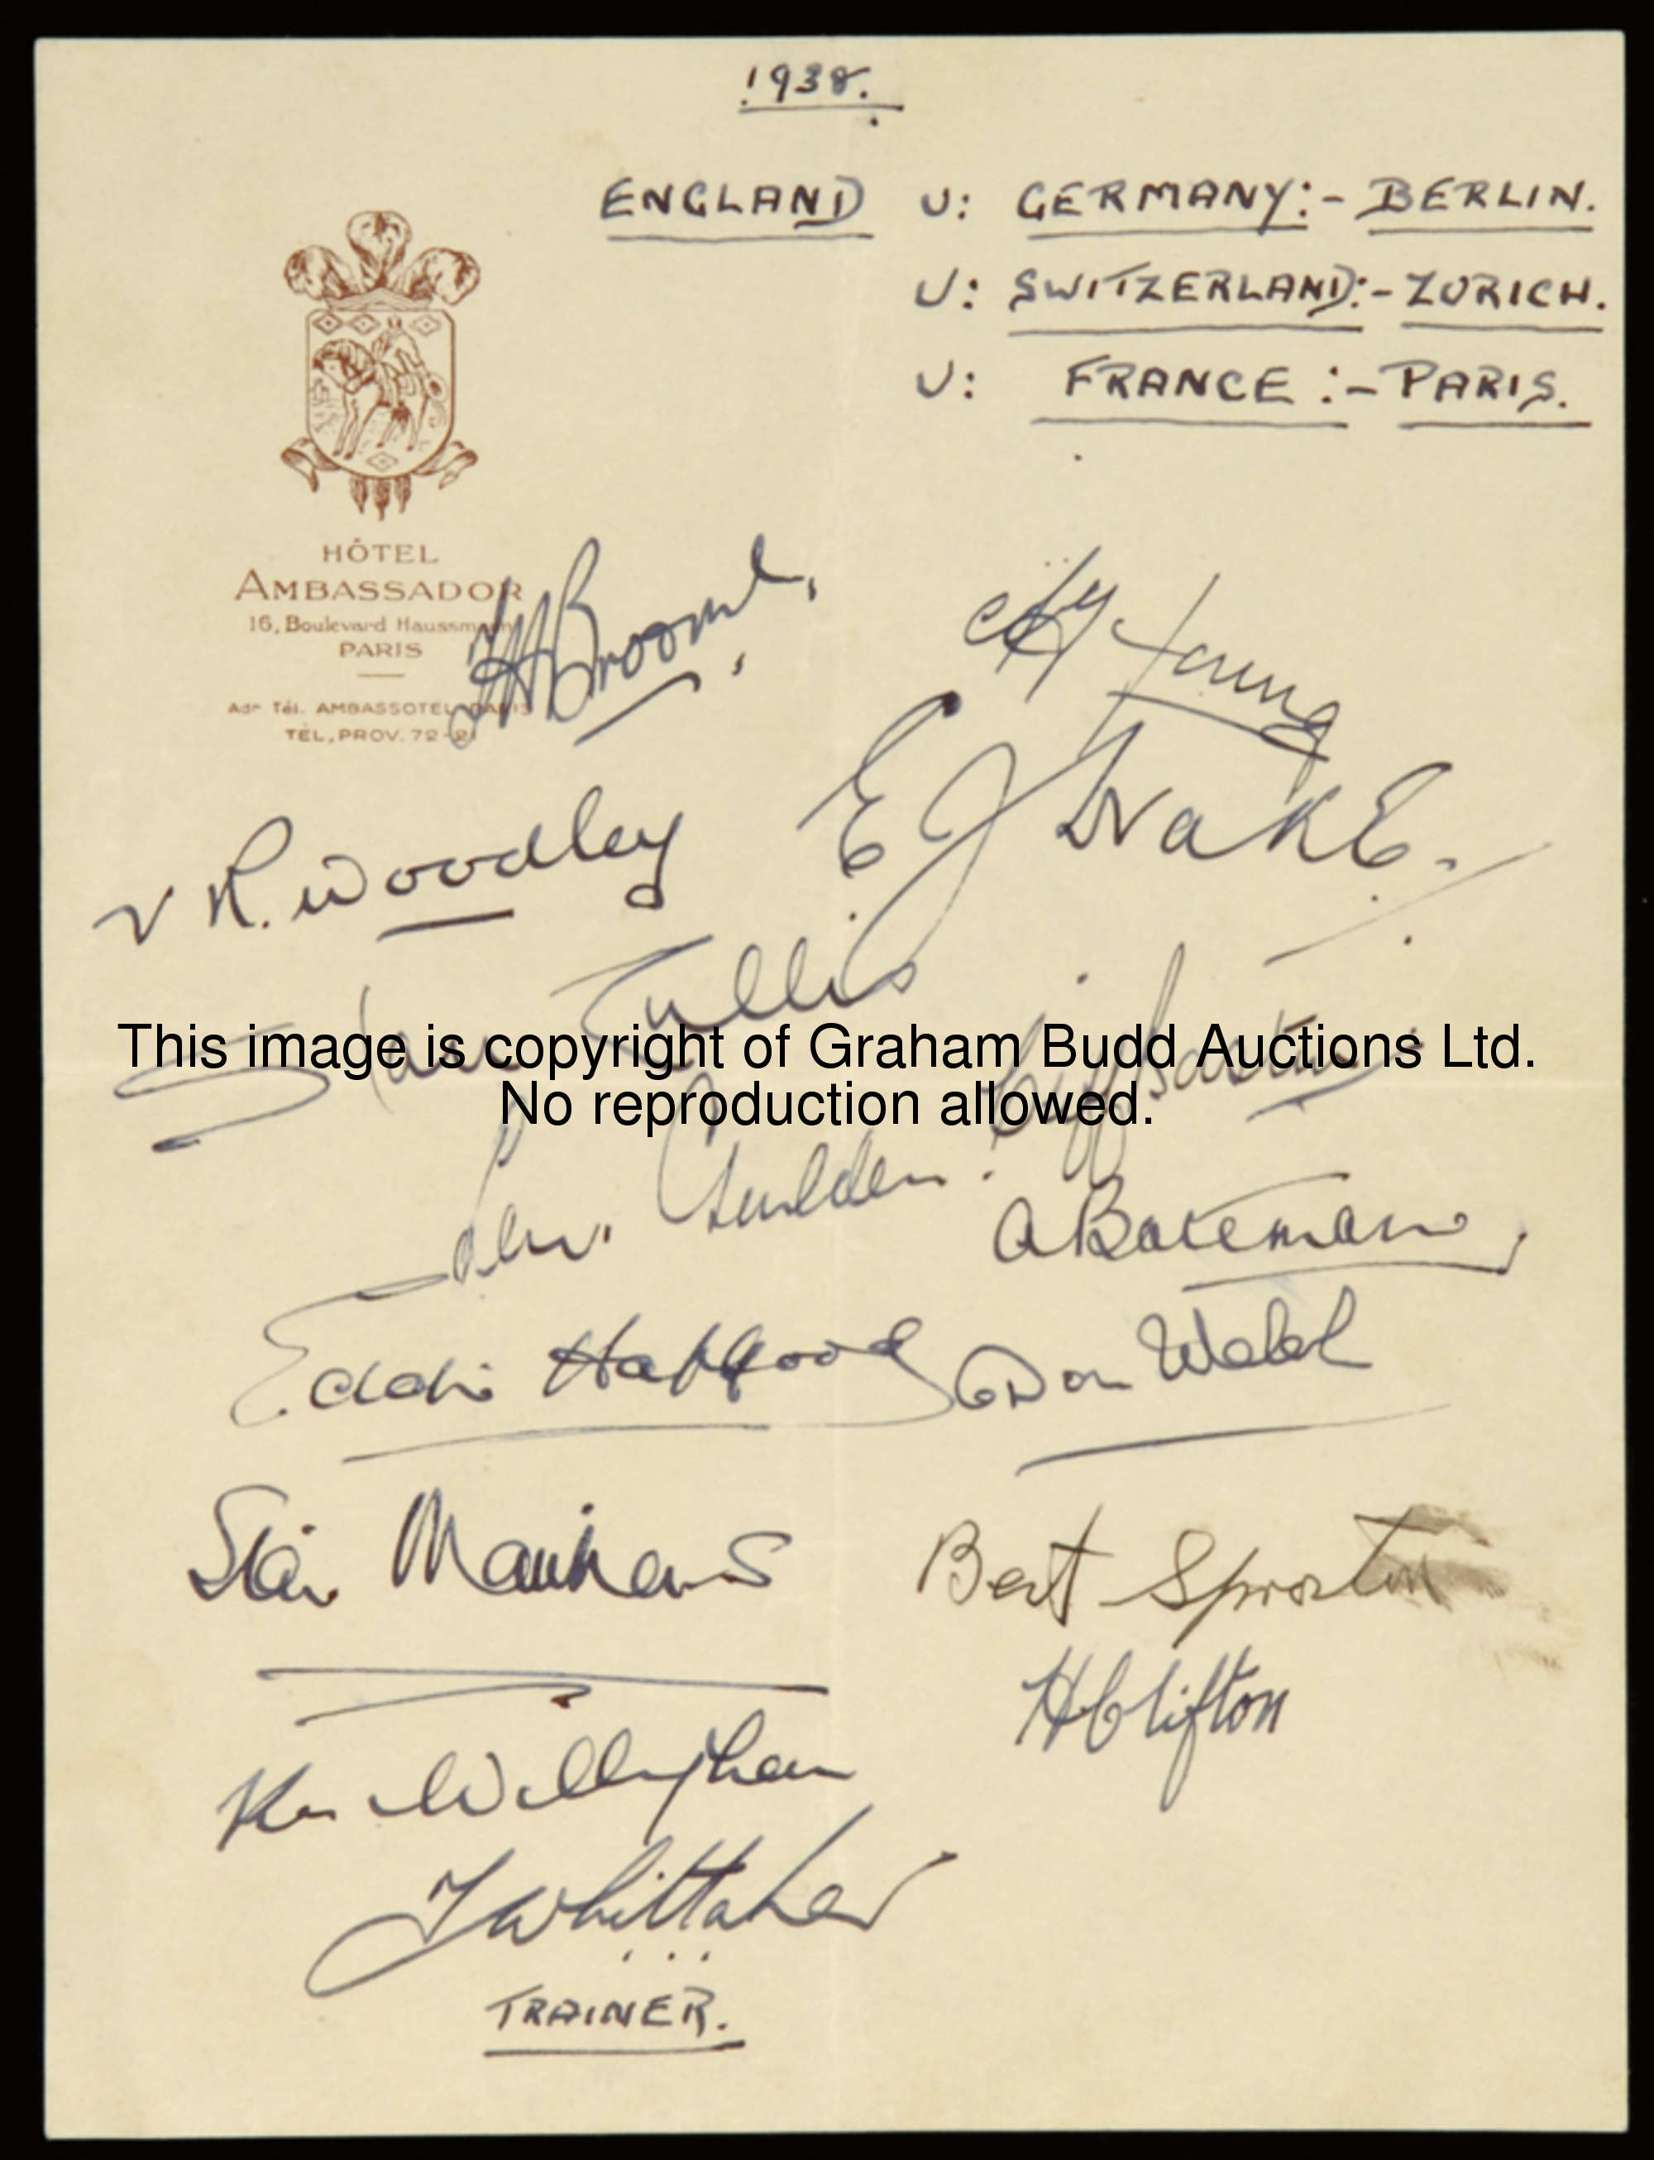 1938.
ENGLAND v: GERMANY:- BERLIN.
v: SWITZERLAND:- ZURICH.
v: FRANCE :- PARIS.
HÔTEL
AMBASSADOR
16, Boulevard Haussmann
PARIS
Adr Tél. AMBASSOTEL-PARIS
TÉL, PROV. 72-21
F H Broome.
Alf Young
E J Drake.
V R. Woodley
Stan Cullis
This image is copyright of Graham Budd Auctions Ltd.
No reproduction allowed.
Len. Goulden.
Cliff Bastin
A Bateman
Eddie Hapgood
Don Welsh
Stan Matthews
Bert Sproston
H Clifton
Ken Willingham
T Whittaker
TRAINER.